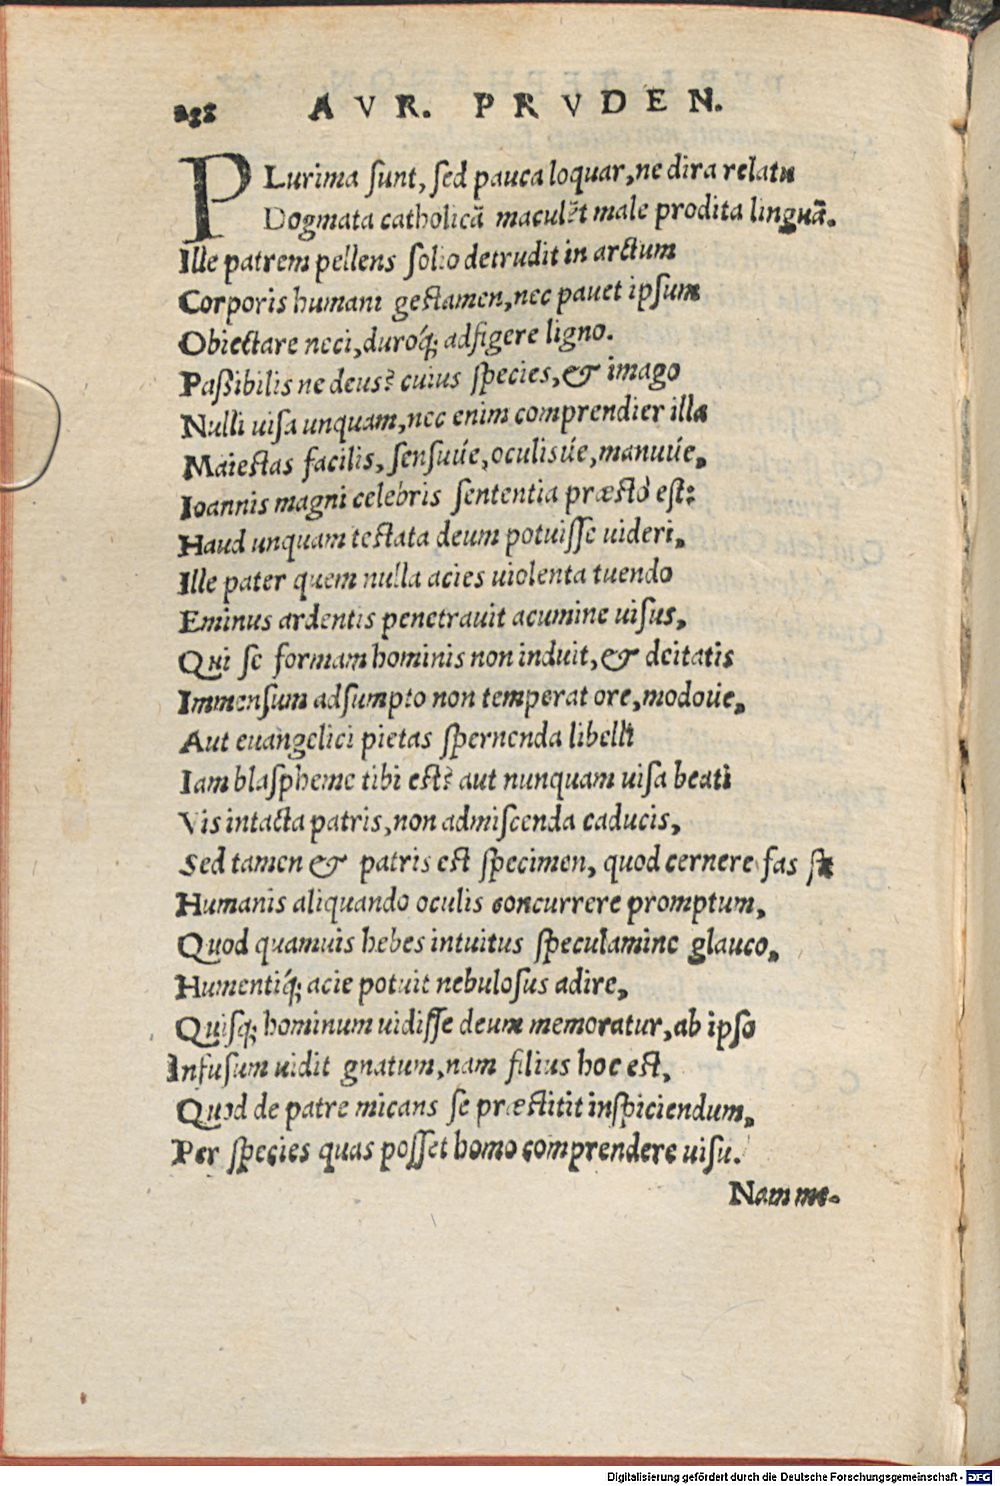 AVR. PRVDEN.
PLurima ſunt, ſed pauca loquar, ne dira relatu
Dogmata catholicā maculēt male prodita linguā.
Ille patrem pellens ſolio detrudit in arctum
Corporis humani geſtamen, nec pauet ipſum
Obiectare neci, duroq́; adfigere ligno.
Paßibilis ne deus? cuius ſpecies, & imago
Nulli uiſa unquam, nec enim comprendier illa
Maieſtas facilis, ſenſuúe, oculisúe, manuúe,
Ioannis magni celebris ſententia præſto eſt:
Haud unquam teſtata deum potuiſſe uideri,
Ille pater quem nulla acies uiolenta tuendo
Eminus ardentis penetrauit acumine uiſus,
Qui ſe formam hominis non induit, & deitatis
Immenſum adſumpto non temperat ore, modoúe,
Aut euangelici pietas ſpernenda libelli
Iam blaſpheme tibi eſt? aut nunquam uiſa beati
Vis intacta patris, non admiſcenda caducis,
Sed tamen & patris eſt ſpecimen, quod cernere fas ſit
Humanis aliquando oculis concurrere promptum,
Quod quamuis hebes intuitus ſpeculamine glauco,
Humentiq́; acie potuit nebuloſus adire,
Quiſq; hominum uidiſſe deum memoratur, ab ipſo
Infuſum uidit gnatum, nam filius hoc eſt,
Quod de patre micans ſe præſtitit inſpiciendum,
Per ſpecies quas poſſet homo comprendere uiſu.
Nam me-
Digitalisierung gefördert durch die Deutsche Forschungsgemeinschaft - DFG